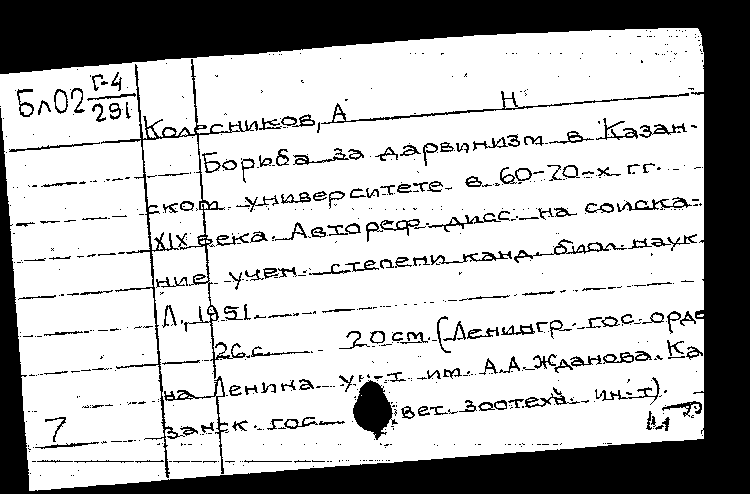 Бл02 Г-4
291
Колесников, А Н
Борьба за дарвинизм в Казан-
ском университете в 60-70-х гг.
XIX века. Автореф. дисс. на соиска-
ние учен. степени канд. биол. наук.
Л., 1951.
26 с. 20 см. (Ленингр. гос. орде
на Ленина ун-т им. А.А. Жданова. Ка
занск. гос. вет. зоотехн. ин-т).
7